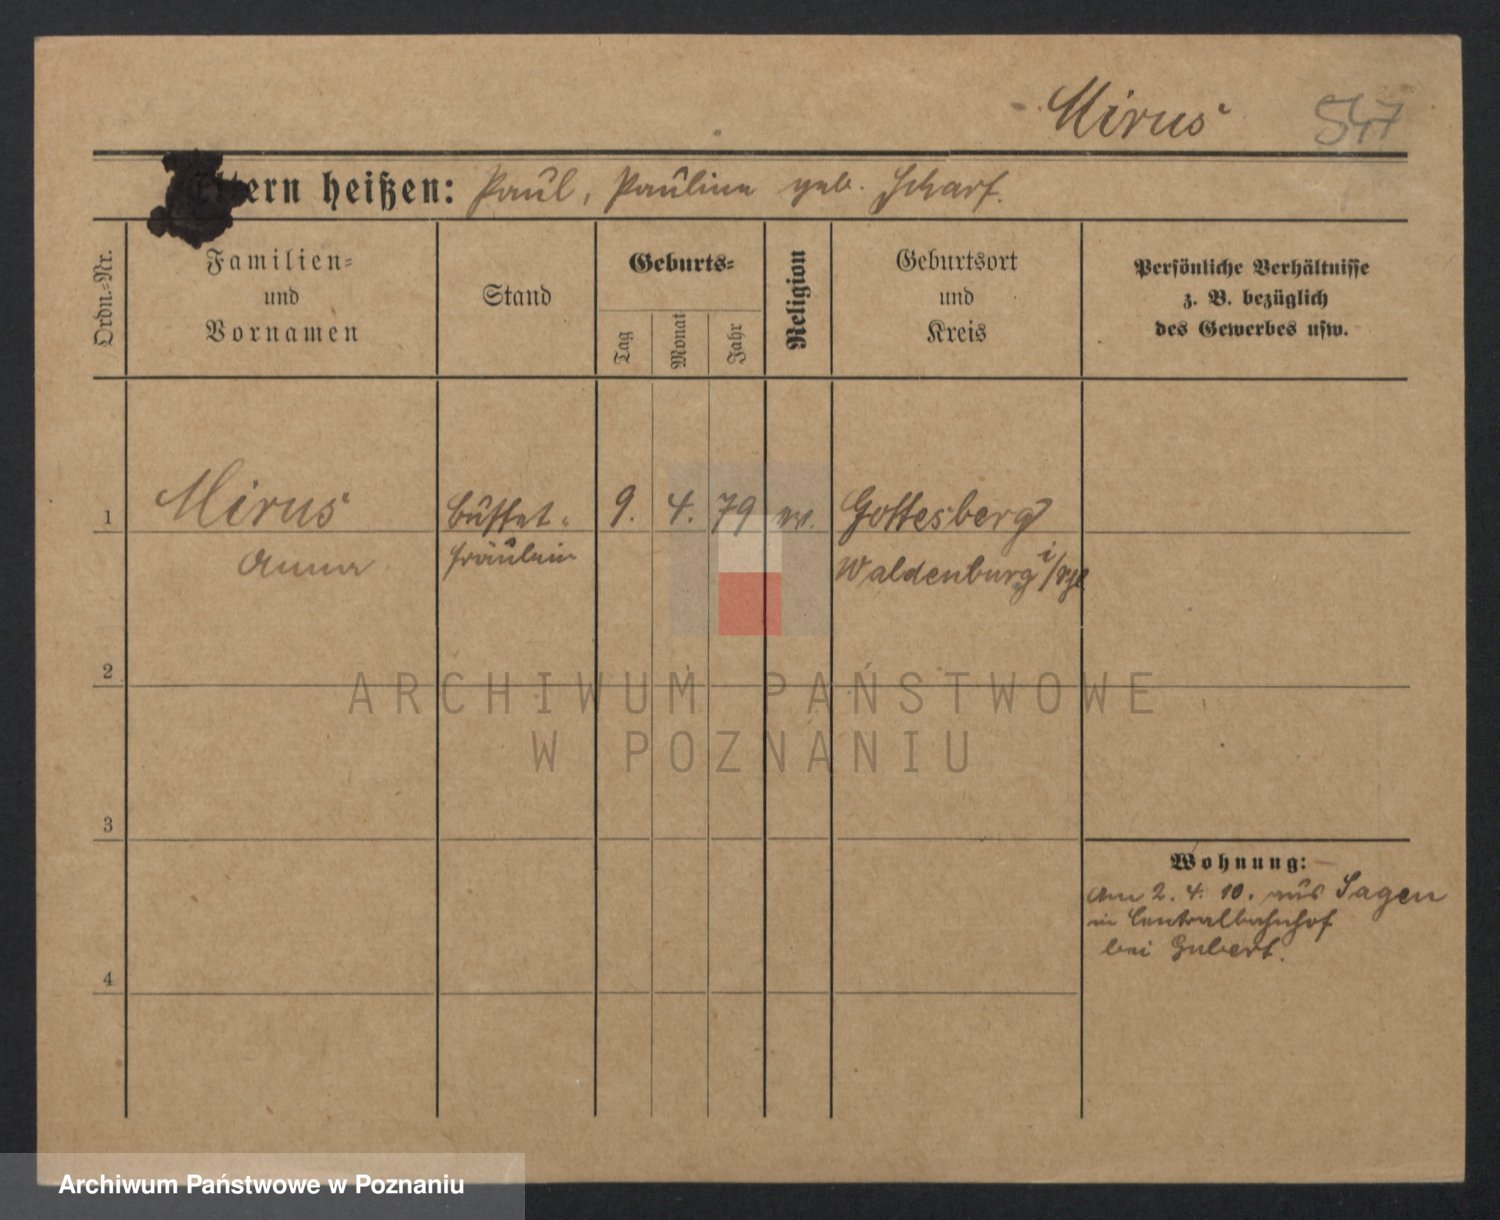 Mirus 547
Eltern heißen: Paul, Pauline geb. Scharf.
Ordn.-Nr.
Familien-
und
Vornamen
Stand
Geburts-
Tag
Monat
Jahr
Religion
Geburtsort
und
Kreis
Persönliche Verhältnisse
z. B. bezüglich
des Gewerbes usw.
1 Mirus Büffet- 9. 4. 79 ev. Gottesberg
Anna fräulein Waldenburg i/Schl
2
ARCHIWUM PAŃSTWOWE
W POZNANIU
3
Wohnung:
Am 2. 4. 10. aus Sagen
in Centralbahnhof
bei Gubert.
4
Archiwum Państwowe w Poznaniu